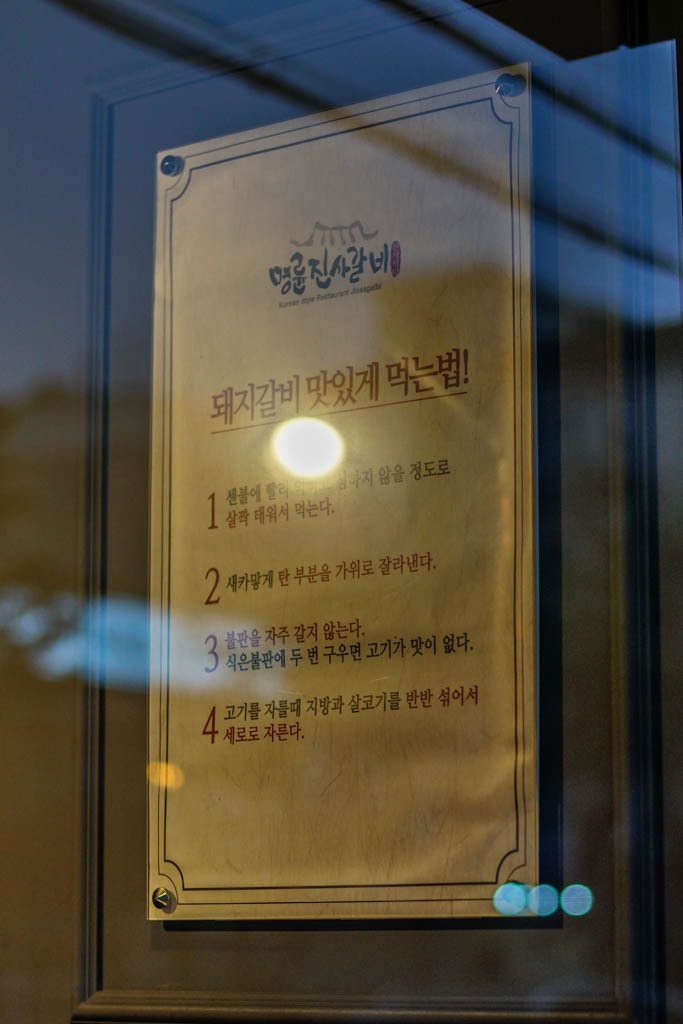 명륜진사갈비
Korean style Restaurant Jinsagalbi
돼지갈비 맛있게 먹는법!
1 센불에 빨리 심하지 않을 정도로
살짝 태워서 먹는다.
2 새카맣게 탄 부분을 가위로 잘라낸다.
3 불판을 자주 갈지 않는다.
식은불판에 두 번 구우면 고기가 맛이 없다.
4 고기를 자를때 지방과 살코기를 반반 섞어서
세로로 자른다.